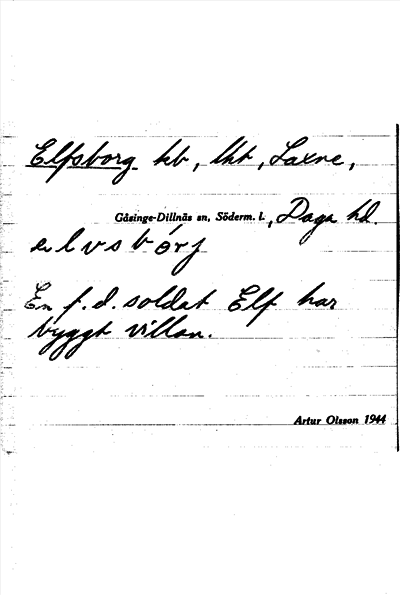 Elfsborg hb, lht, Laxne,
Gåsinge-Dillnäs sn, Söderm. l., Daga hd.
elvsbórj
En f.d. soldat Elf har
byggt villan.
Artur Olsson 1944